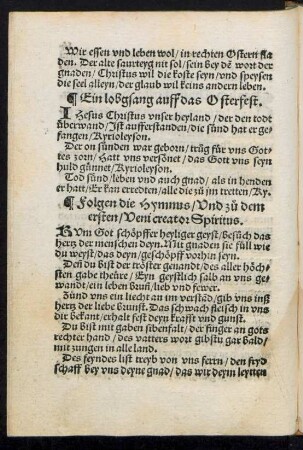 Wir essen vnd leben wol/ in rechten Ostern fla
den. Der alte saurteyg nit sol/ sein bey dē wort der
gnaden/ Christus wil die koste seyn/ vnd speysen
die seel alleyn/ der glaub wil keins andern leben.
¶ Ein lobgsang auff das Osterfest.
IHesus Christus vnser heyland/ der den todt
überwand/ Ist aufferstanden/ die sünd hat er ge
fangen/ Kyrioleyson.
Der on sünden war geborn/ trüg für vns Got
tes zorn/ Hatt vns versönet/ das Gott vns seyn
huld günnet/ Kyrioleyson.
Tod sünd/ leben vnd auch gnad/ als in henden
er hatt/ Er kan erredten/ alle die zů im tretten/ Ky.
¶ Folgen die Hymnus/ Vnd zů dem
ersten/ Veni creator Spiritus.
KUm Got schöpffer heyliger geyst/ besůch das
hertz der menschen deyn. Mit gnaden sie füll wie
du weyst/ das deyn/ geschöpff vorhin seyn.
Deñ du bist der tröster genandt/ des aller höch/
sten gabe theüre/ Eyn geystlich salb an vns ge/
wandt/ ein leben bruñ/ lieb vnd fewer.
Zünd vns ein liecht an im verstād/ gib vns inß
hertz der liebe brunst. Das schwach fleisch in vns
dir bekant/ erhalt fest deyn krafft vnd gunst.
Du bist mit gaben sibenfalt/ der finger an gots
rechter hand/ des vatters wort gibstu gar bald/
mit zungen in alle land.
Des feyndes list treyb von vns fern/ den fryd
schaff bey vns deyne gnad/ das wir deym leytten